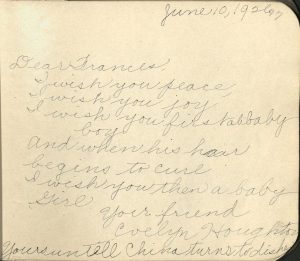 June 10, 1926
Dear Frances,
I wish you peace
I wish you joy
I wish you first a baby
boy
And when his hair
begins to curl
I wish you then a baby
Girl
Your friend
Evelyn Houghton
Yours untell China turns to dishes